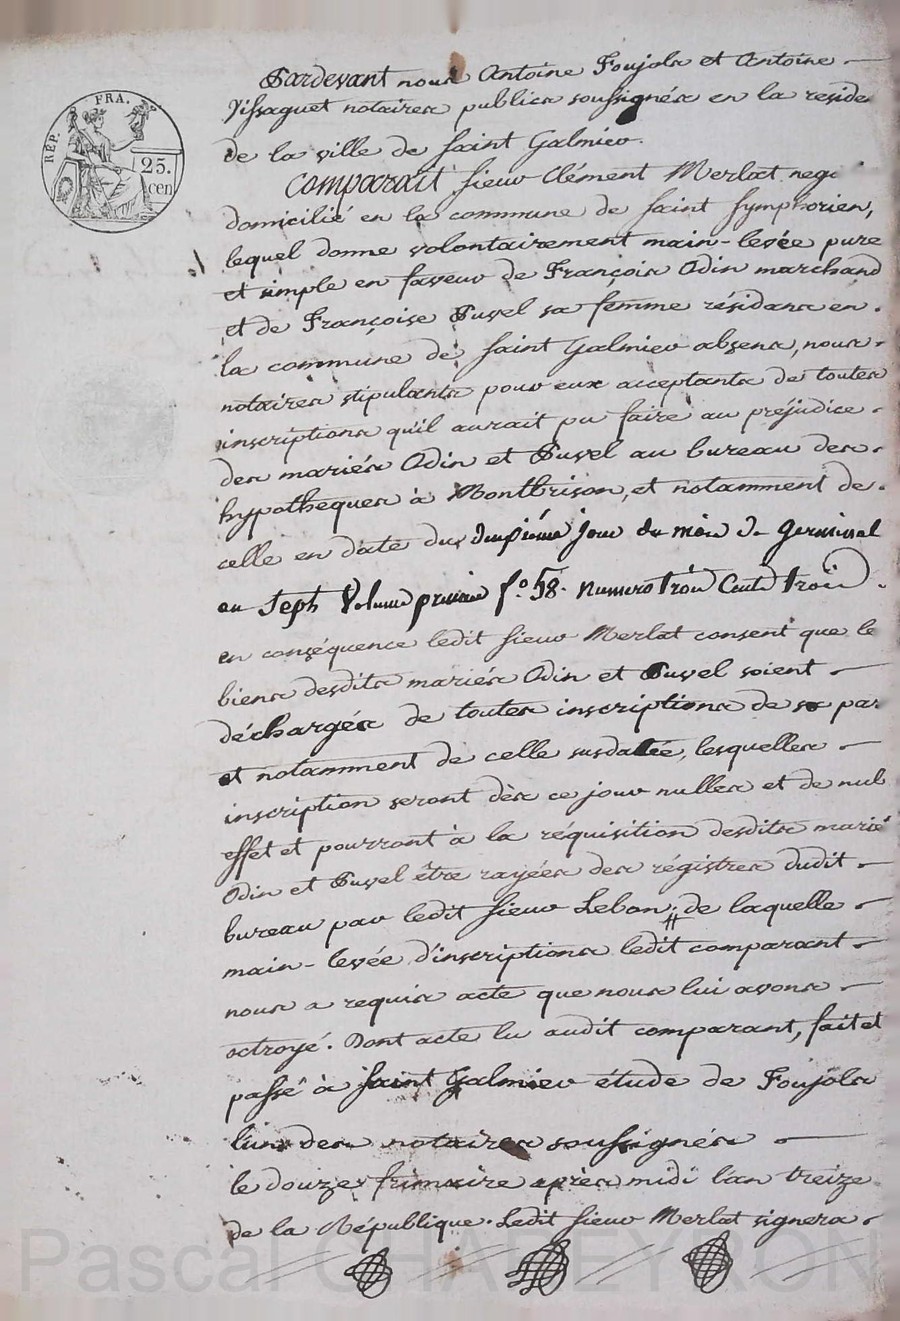 RÉP. FRA.
25.
cen
Pardevant nous Antoine Foujols et Antoine
Vissaguet notaires publics soussignés en la reside
de la ville de Saint Galmier.
Comparait Sieur Clément Merlat neg
domicilié en la commune de Saint Symphorien,
lequel donne volontairement main-levée pure
et simple en faveur de François Odin marchand
et de Françoise Puvel sa femme résidans en
la commune de Saint Galmier absens, nous
notaires stipulants pour eux acceptants de toutes
inscriptions qu'il aurait pu faire au préjudice
des mariés Odin et Puvel au bureau des
hypotheques à Montbrison, et notamment de
celle en date du jour du mois de Germinal
an Sept Volume premier f.º 58. Numero trois Cent trois
en conséquence ledit Sieur Merlat consent que le
biens desdits mariés Odin et Puvel soient
déchargés de toutes inscriptions de sa par
et notamment de celle susdatée, lesquelles
inscription seront dès ce jour nulles et de nul
effet et pourront à la réquisition desdits marié
Odin et Puvel être rayées des régistres dudit
bureau par ledit Sieur Lebon, de laquelle
main-levée d'inscriptions ledit comparant
nous a requis acte que nous lui avons
octroyé. Dont acte lu audit comparant, fait et
passé à Saint Galmier étude de Foujols
l'un des notaires soussignés
le douze frimaire après midi l'an treize
de la République. Ledit Sieur Merlat signera
Pascal CHABEYRON